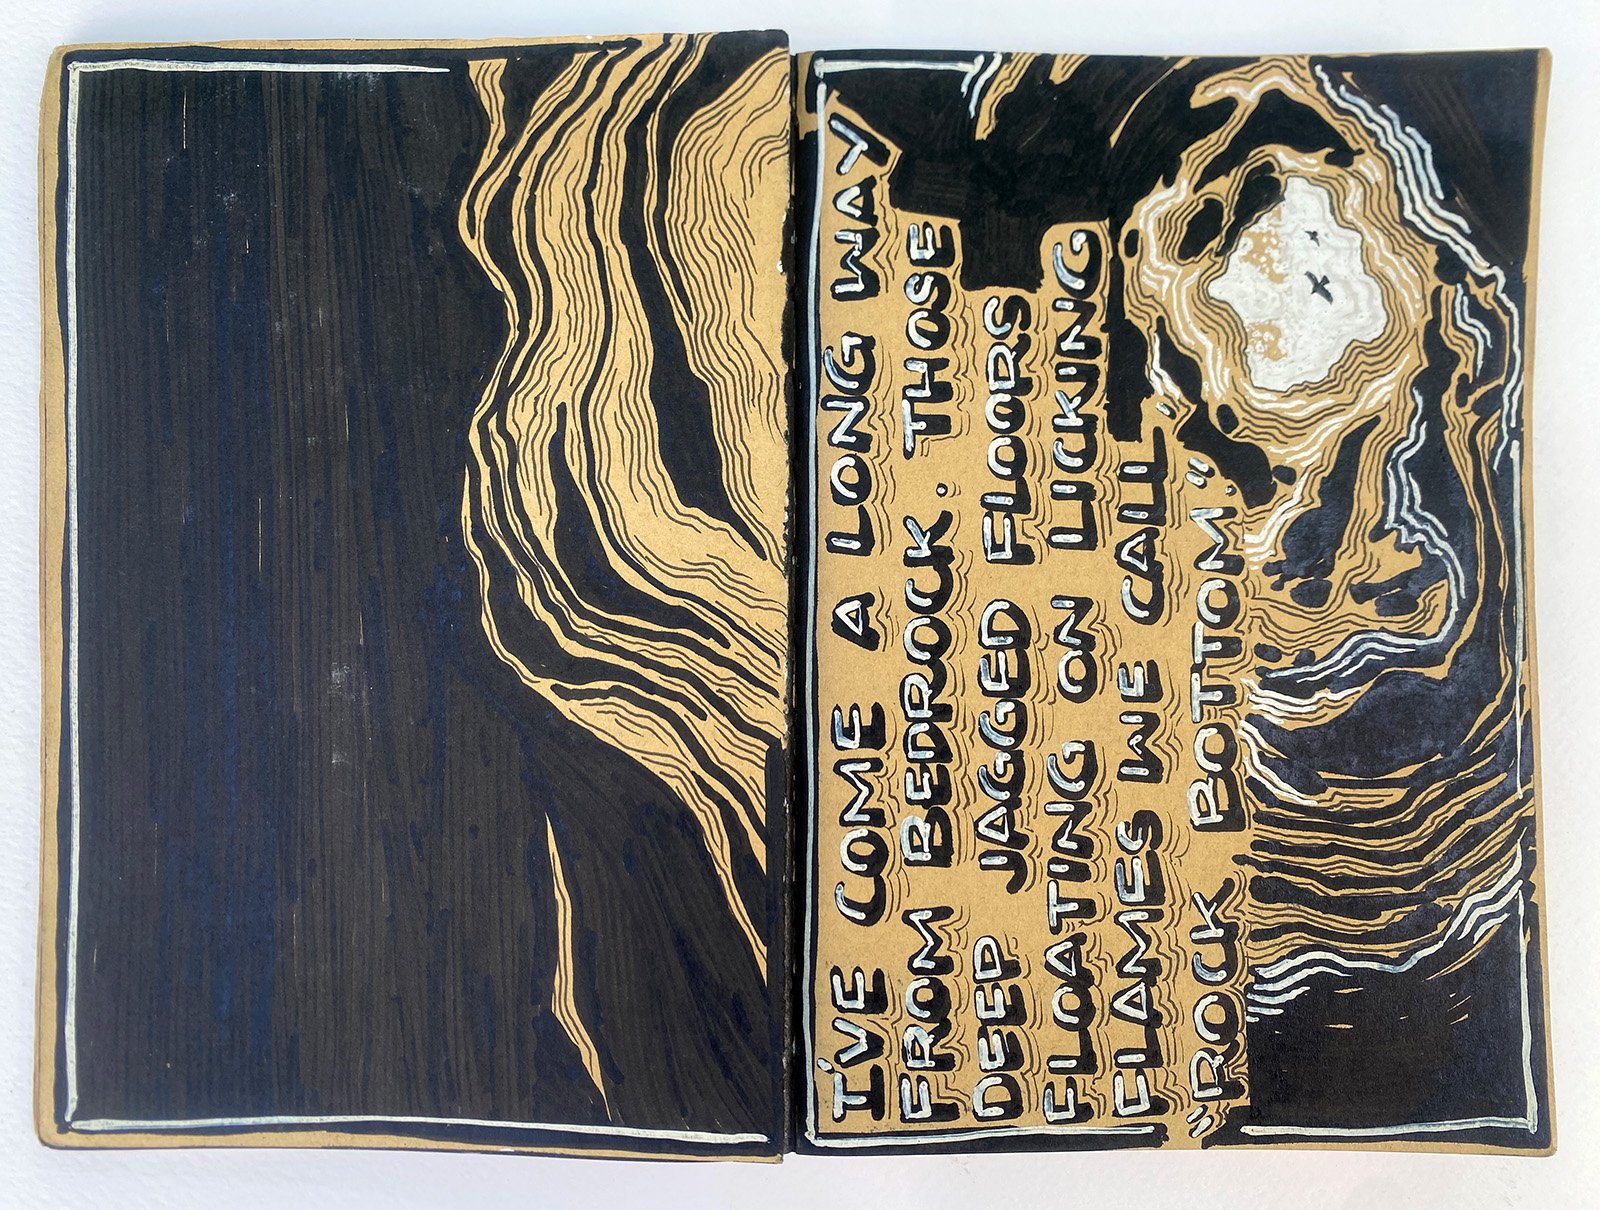 I'VE COME A LONG WAY
FROM BEDROCK. THOSE
DEEP JAGGED FLOORS
FLOATING ON LICKING
FLAMES WE CALL,
"ROCK BOTTOM."